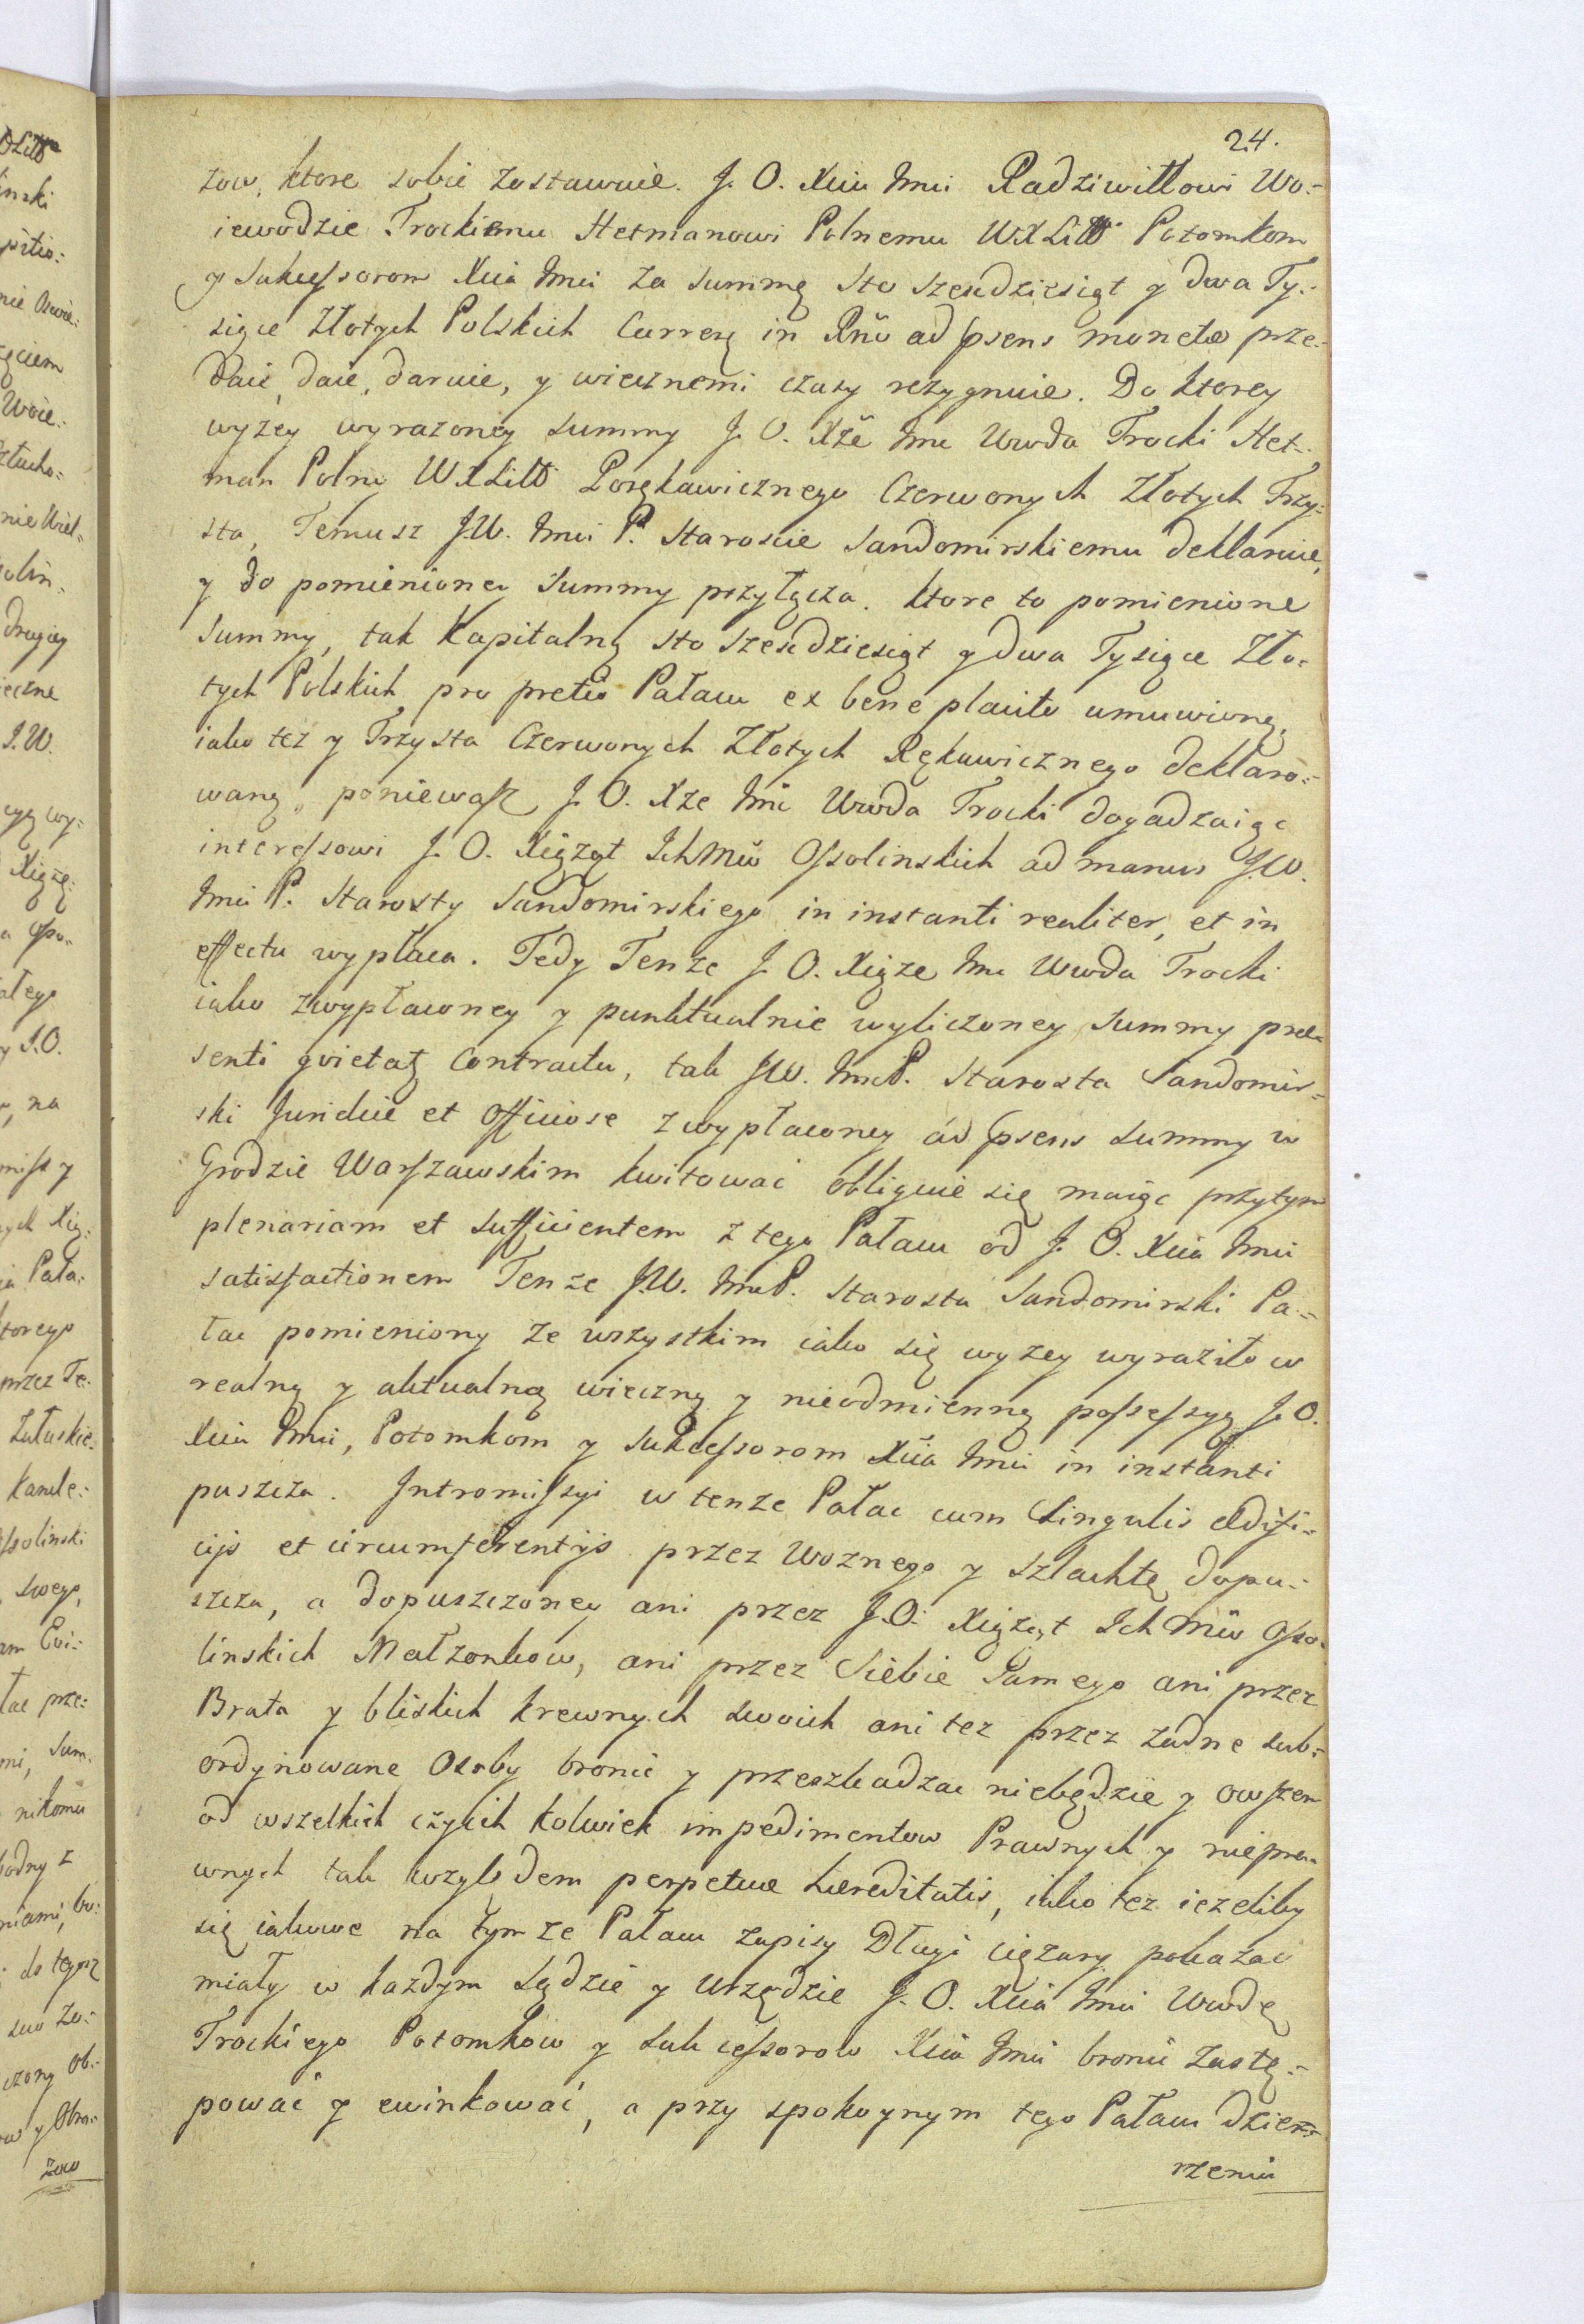 24.
zow, ktore sobie zostawuie. J. O. Xciu Jmci Radziwiłłowi Wo:-
iewodzie Trockiemu Hetmanowi Polnemu WXLitt Potomkom
y Sukcessorom Xcia Jmci za Summę Sto Szescdziesiąt y dwa Ty:-
siące Złotych Polskich Currey in Rno ad psens moneta prze:-
daie, daie, daruie, y wiecznemi czasy rezygnuie. Do ktorey
wyzey wyrazoney Summy J. O. Xże Jmc Wwda Trocki Het:-
man Polny WXLitt Porękawicznego Czerwonych Złotych Trzy:-
sta, Temusz J.W. Jmci P. Staroscie Sandomirskiemu deklaruie,
y do pomienioney Summy przyłącza. ktore to pomienione
Summy, tak Kapitalną Sto Szescdziesiąt y Dwa Tysiące Zło-
tych Polskich pro pretio Pałacu ex bene placito umowioną,
iako tez y Trzysta Czerwonych Złotych Rękawicznego deklaro:-
waną, poniewasz J. O. Xze Jmc Wwda Trocki dogadzaiąc
interessowi J. O. Xiążąt IchMców Ossolinskich ad manus J.W.
Jmci P. Starosty Sandomirskiego in instanti realiter, et in
effectu wypłaca. Tedy Tenze J. O. Xiąze Jmc Wwda Trocki
iako zwypłaconey y punktualnie wyliczoney Summy prae-
senti quietat Contractu, tak JW. JmcP. Starosta Sandomir=
ski Juridice et Officiose z wypłaconey ad psens Summy w
Grodzie Warszawskim kwitowac obliguie się maiąc przytym
plenariam et Sufficientem z tego Pałacu od J. O. Xcia Jmci
satisfactionem Tenze J.W. JmcP. Starosta Sandomirski Pa:-
łac pomieniony ze wszystkim iako się wyzey wyraziło w
realną y aktualną wieczną y nieodmienną possessyą J. O.
Xcia Jmci, Potomkom y Sukcessorom Xcia Jmci in instanti
puszcza. Intromissyi w tenze Pałac cum Singulis Edifi:-
cijs et circumferentijs przez Woznego y Szlachtę dopu:-
szcza, a dopuszczoney ani przez J.O. Xiąząt IchMciw Osso-
linskich Małzonkow, ani przez Siebie Samego ani przez
Brata y bliskich krewnych swoich ani tez przez zadne sub=
ordynowane Osoby bronic y przeszkadzac niebędzie y owszem
od wszelkich czyich kolwiek impedimentow Prawnych y niepra-
wnych tak wzglądem perpetuae haereditatis, iako tez iezeliby
się iakowe na tymze Pałacu zapisy Długi ciężary pokazac
miały w kazdym Sądzie y Urzędzie J. O. Xcia Jmci Wwdę
Trockiego Potomkow y Sukcessorow Xcia Jmci bronic zastę:-
powac y ewinkowac, a przy spokoynym tego Pałacu dzier=
rzeniu